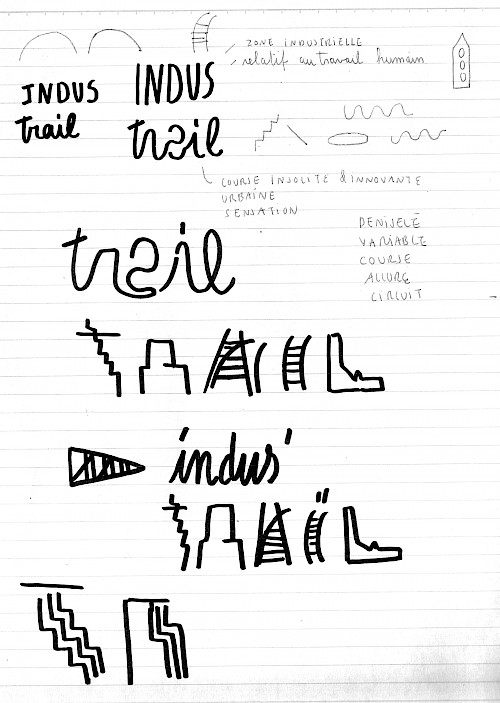 ZONE INDUSTRIELLE
relatif au travail humain
INDUS
trail
INDUS
trail
COURSE INSOLITE & INNOVANTE
URBAINE
SENSATION
trail
DENIVELÉ
VARIABLE
COURSE
ALLURE
CIRCUIT
TRAIL
indus'
TRAIL
TR